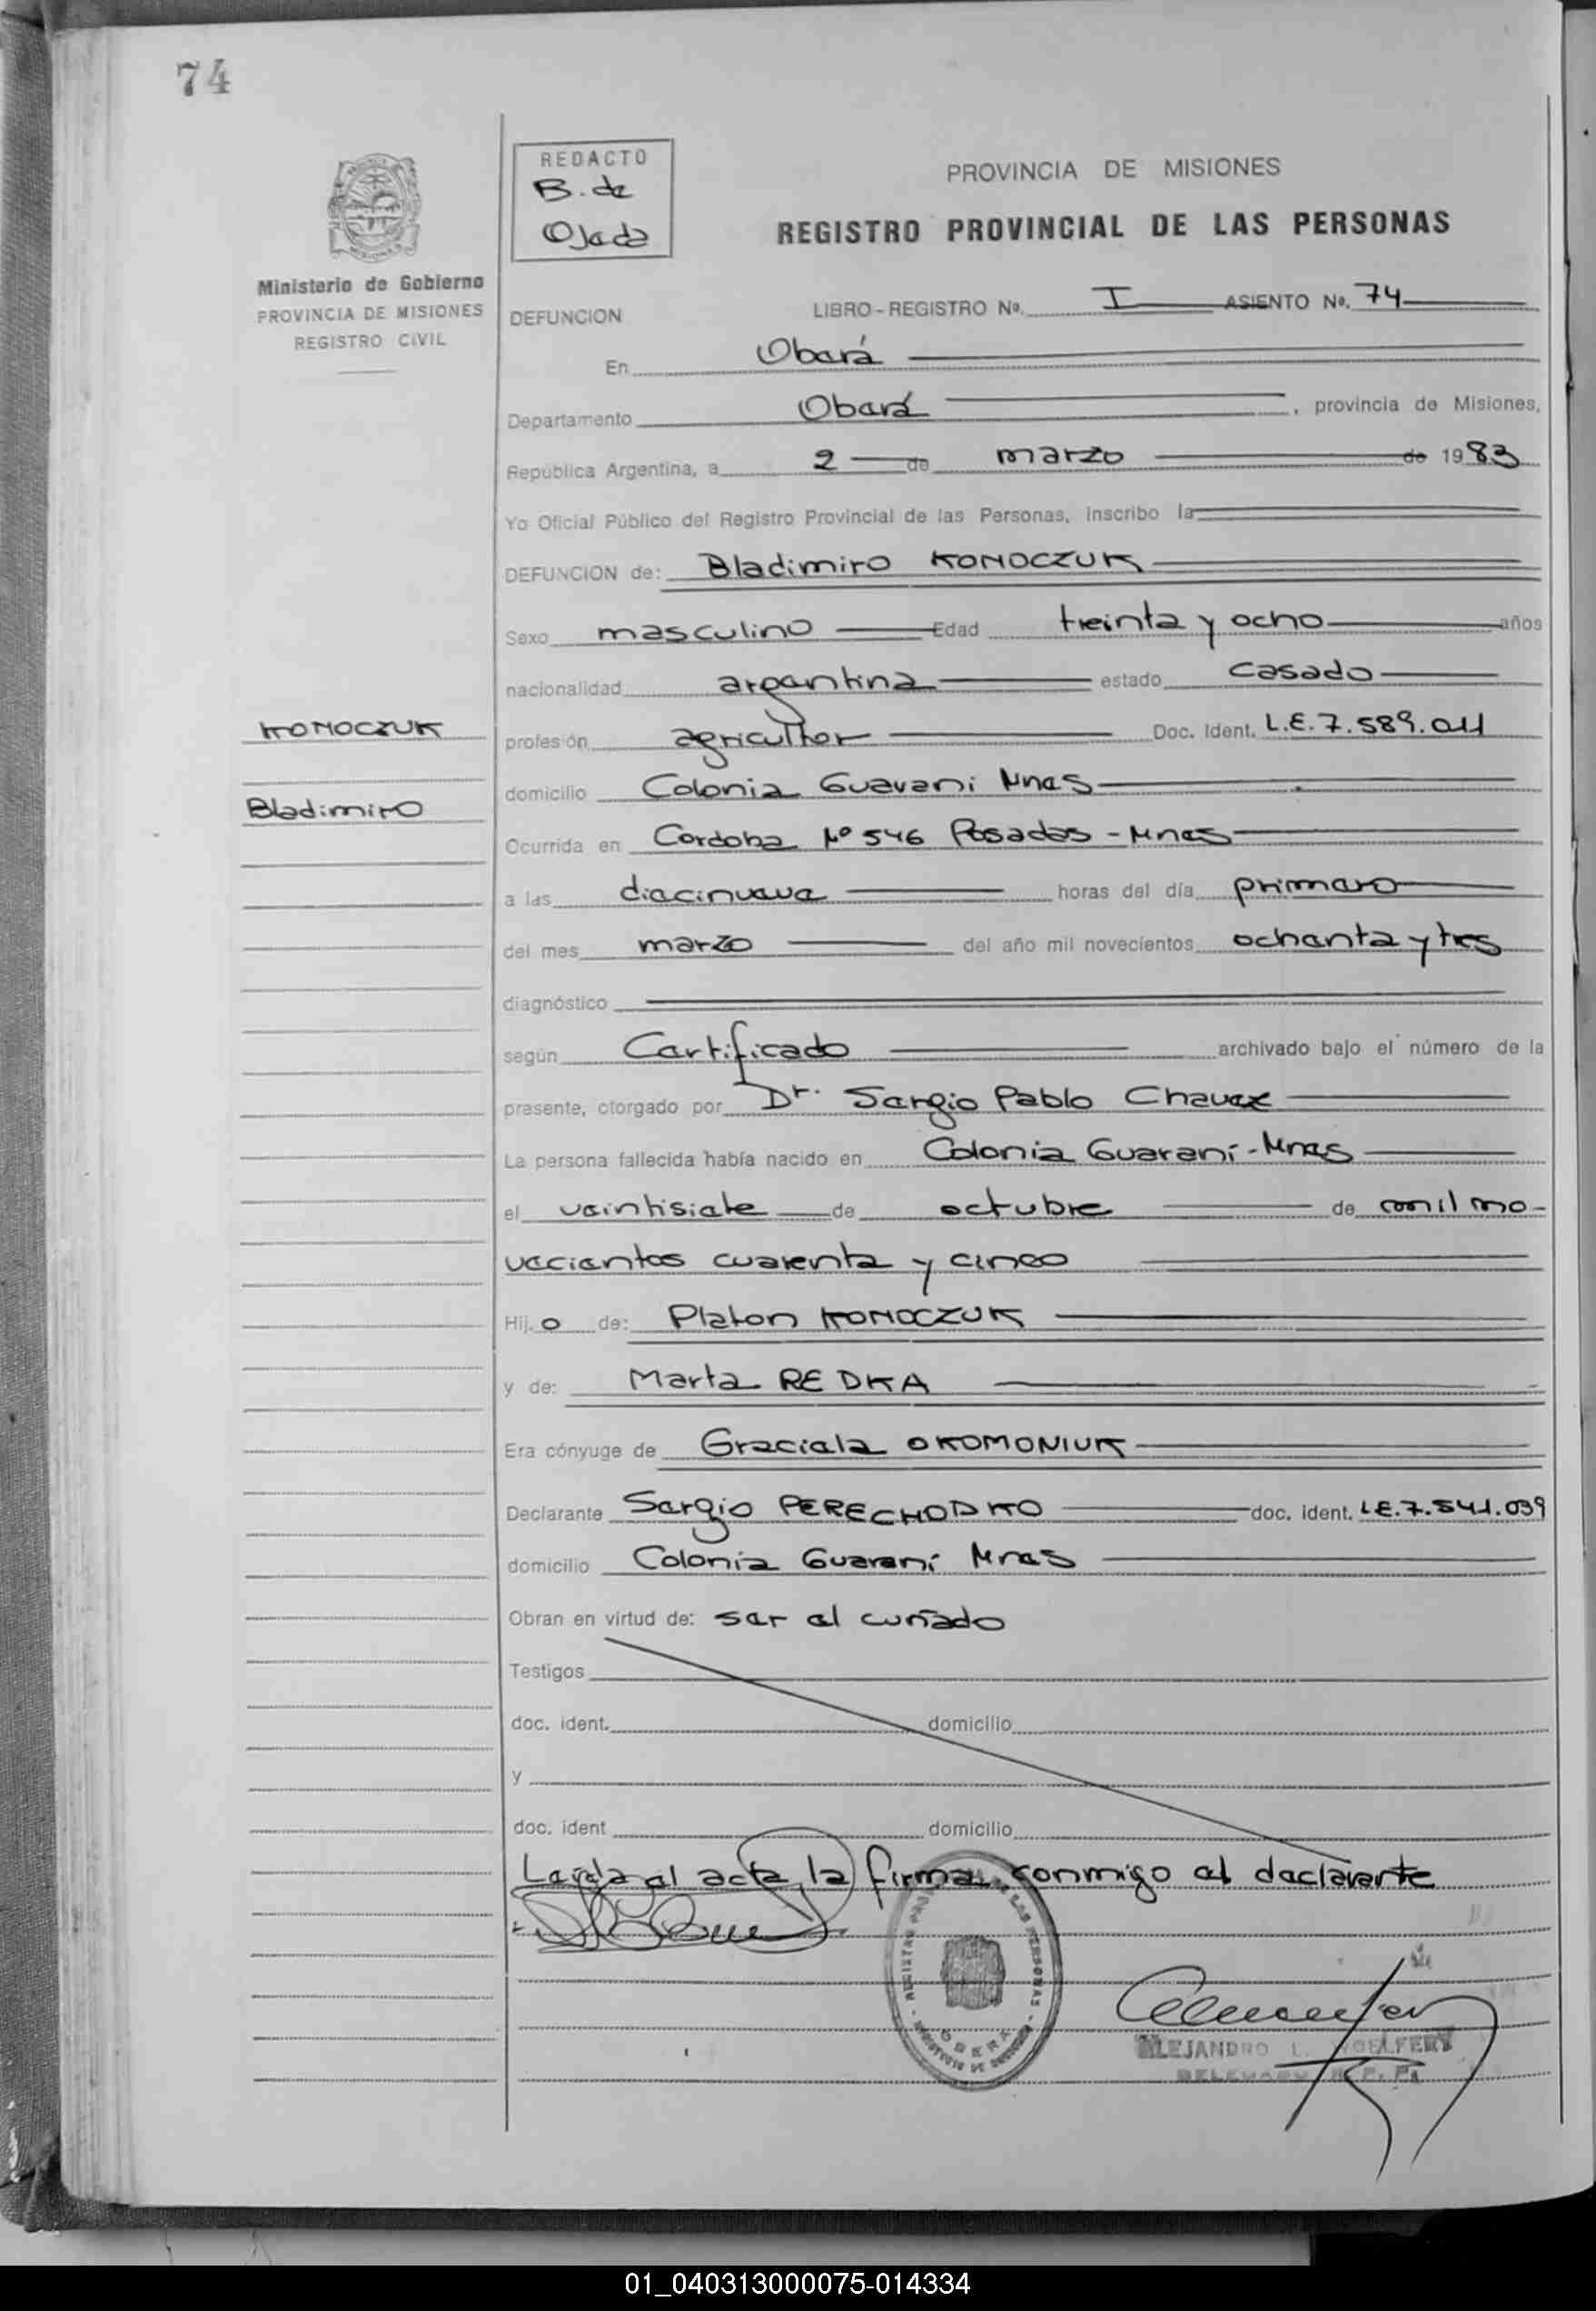 74
REDACTO
B. de
Ojeda
PROVINCIA DE MISIONES
REGISTRO PROVINCIAL DE LAS PERSONAS
Ministerio de Gobierno
PROVINCIA DE MISIONES
REGISTRO CIVIL
DEFUNCION LIBRO-REGISTRO No. I ASIENTO No. 74
En Oberá
Departamento Oberá, provincia de Misiones,
República Argentina, a 2 de marzo de 1983
Yo Oficial Público del Registro Provincial de las Personas, inscribo la
DEFUNCION de: Bladimiro KONOCZUK
Sexo masculino Edad treinta y ocho años
nacionalidad argentina estado casado
KONOCZUK
profesión agricultor Doc. Ident. L.E. 7.589.011
domicilio Colonia Guarani Mnes
Bladimiro
Ocurrida en Cordoba Nº 546 Posadas - Mnes
a las diecinueve horas del día primero
del mes marzo del año mil novecientos ochenta y tres
diagnóstico
según Certificado archivado bajo el número de la
presente, otorgado por Dr. Sergio Pablo Chavez
La persona fallecida había nacido en Colonia Guaraní - Mnes
el veintisiete de octubre de mil no-
vecientos cuarenta y cinco
Hij o de: Platon KONOCZUK
y de: Marta REDKA
Era cónyuge de Graciela OKOMONIUK
Declarante Sergio PERECHODKO doc. ident. L.E. 7.541.039
domicilio Colonia Guaraní Mnes
Obran en virtud de: ser el cuñado
Testigos
doc. ident. domicilio
y
doc. ident domicilio
Leída el acta, la firma conmigo el declarante
REGISTRO PROVINCIAL DE LAS PERSONAS
OBERA
MINISTERIO DE GOBIERNO
ALEJANDRO L.
01_040313000075-014334